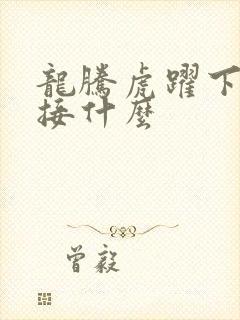 龍騰虎躍下
接什麼
曾毅